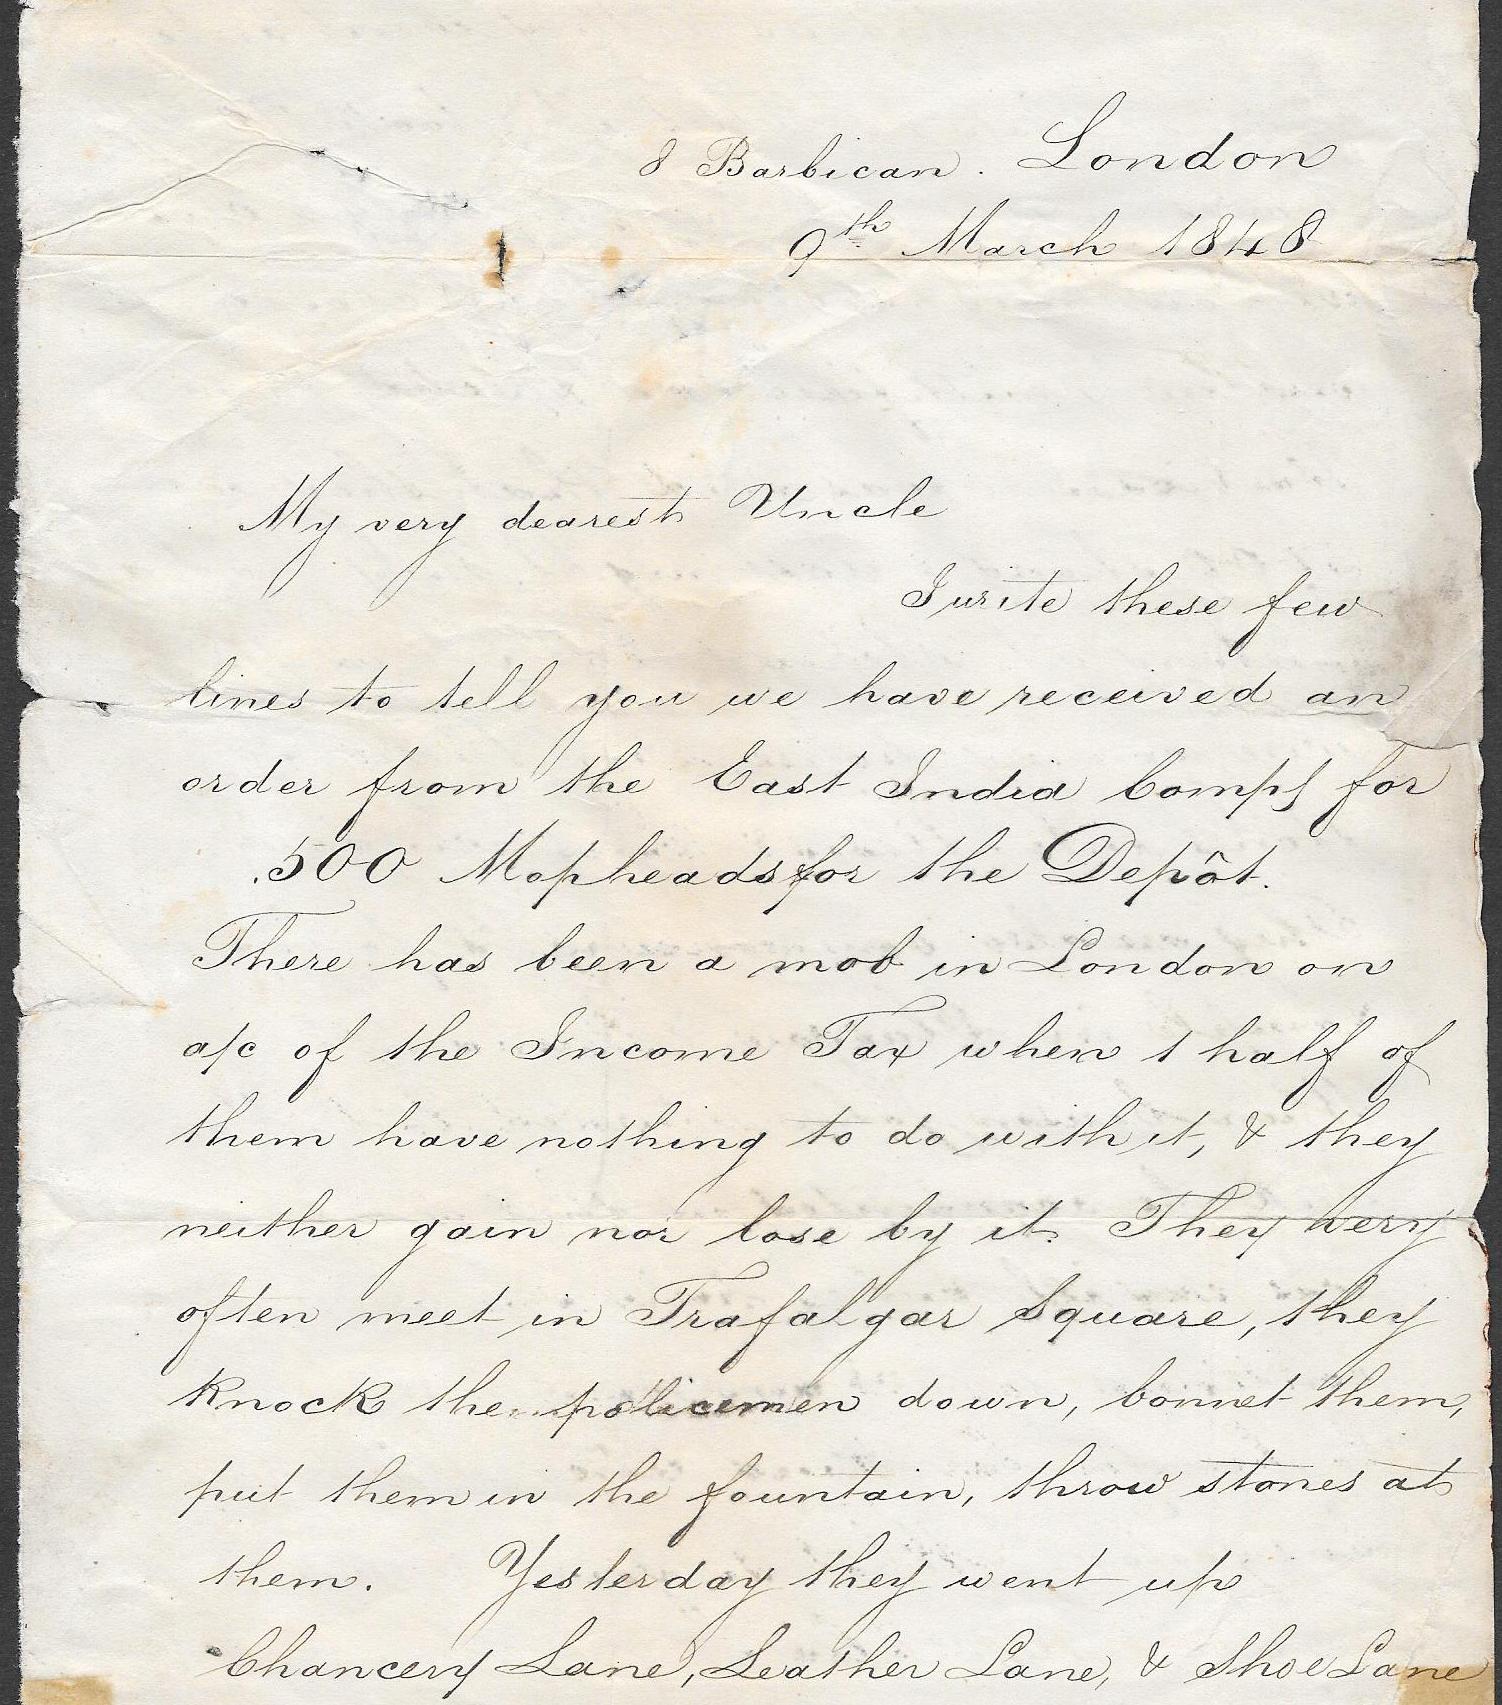 8 Barbican. London
9th March 1848
My very dearest Uncle
I write these few
lines to tell you we have received an
order from the East India Compy for
500 Mopheads for the Depôt.
There has been a mob in London on
a/c of the Income Tax when 1 half of
them have nothing to do with it, & they
neither gain nor lose by it. They very
often meet in Trafalgar Square, they
knock the policemen down, bonnet them,
put them in the fountain, throw stones at
them. Yesterday they went up
Chancery Lane, Leather Lane, & Shoe Lane